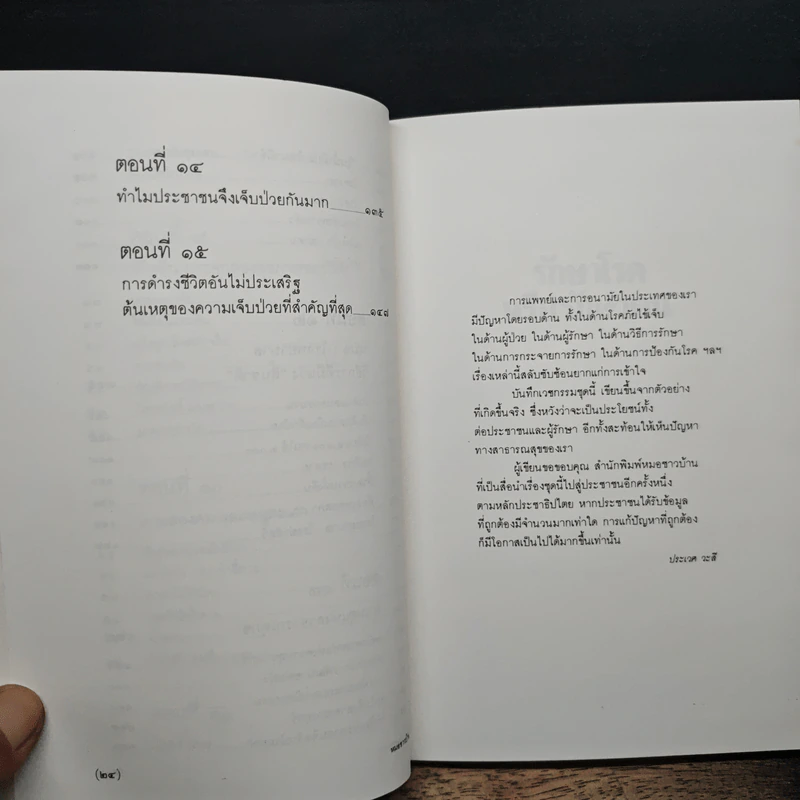 ตอนที่ ๑๔
ทำไมประชาชนจึงเจ็บป่วยกันมาก ๑๓๕
ตอนที่ ๑๕
การดำรงชีวิตอันไม่ประเสริฐ
ต้นเหตุของความเจ็บป่วยที่สำคัญที่สุด ๑๔๘
(๒๔)
การแพทย์และการอนามัยในประเทศของเรา
มีปัญหาโดยรอบด้าน ทั้งในด้านโรคภัยไข้เจ็บ
ในด้านผู้ป่วย ในด้านผู้รักษา ในด้านวิธีการรักษา
ในด้านการกระจายการรักษา ในด้านการป้องกันโรค ฯลฯ
เรื่องเหล่านี้สลับซับซ้อนยากแก่การเข้าใจ
บันทึกเวชกรรมชุดนี้ เขียนขึ้นจากตัวอย่าง
ที่เกิดขึ้นจริง ซึ่งหวังว่าจะเป็นประโยชน์ทั้ง
ต่อประชาชนและผู้รักษา อีกทั้งสะท้อนให้เห็นปัญหา
ทางสาธารณสุขของเรา
ผู้เขียนขอขอบคุณ สำนักพิมพ์หมอชาวบ้าน
ที่เป็นสื่อนำเรื่องชุดนี้ไปสู่ประชาชนอีกครั้งหนึ่ง
ตามหลักประชาธิปไตย หากประชาชนได้รับข้อมูล
ที่ถูกต้องมีจำนวนมากเท่าใด การแก้ปัญหาที่ถูกต้อง
ก็มีโอกาสเป็นไปได้มากขึ้นเท่านั้น
ประเวศ วะสี